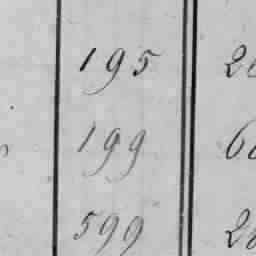 195
199
599